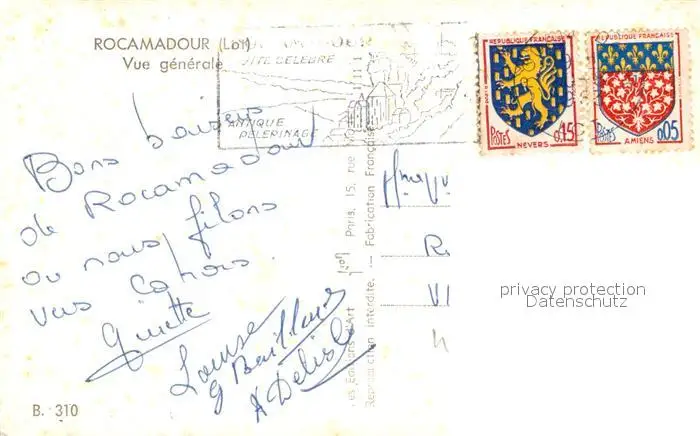 ROCAMADOUR (Lot)
Vue générale
SITE CELEBRE
ANTIQUE
PELERINAGE
REPUBLIQUE FRANÇAISE
POSTES 0,15
NEVERS
REPUBLIQUE FRANÇAISE
POSTES 0,05
AMIENS
Bons baisers
de Rocamadour
ou nous filons
vers Cahors.
Ginette
Louise
G Baillard
A Delisle
Les Editions d'Art YVON Paris, 15, rue
Reproduction Interdite. — Fabrication Française
Mme
R
VI
privacy protection
Datenschutz
B. 310